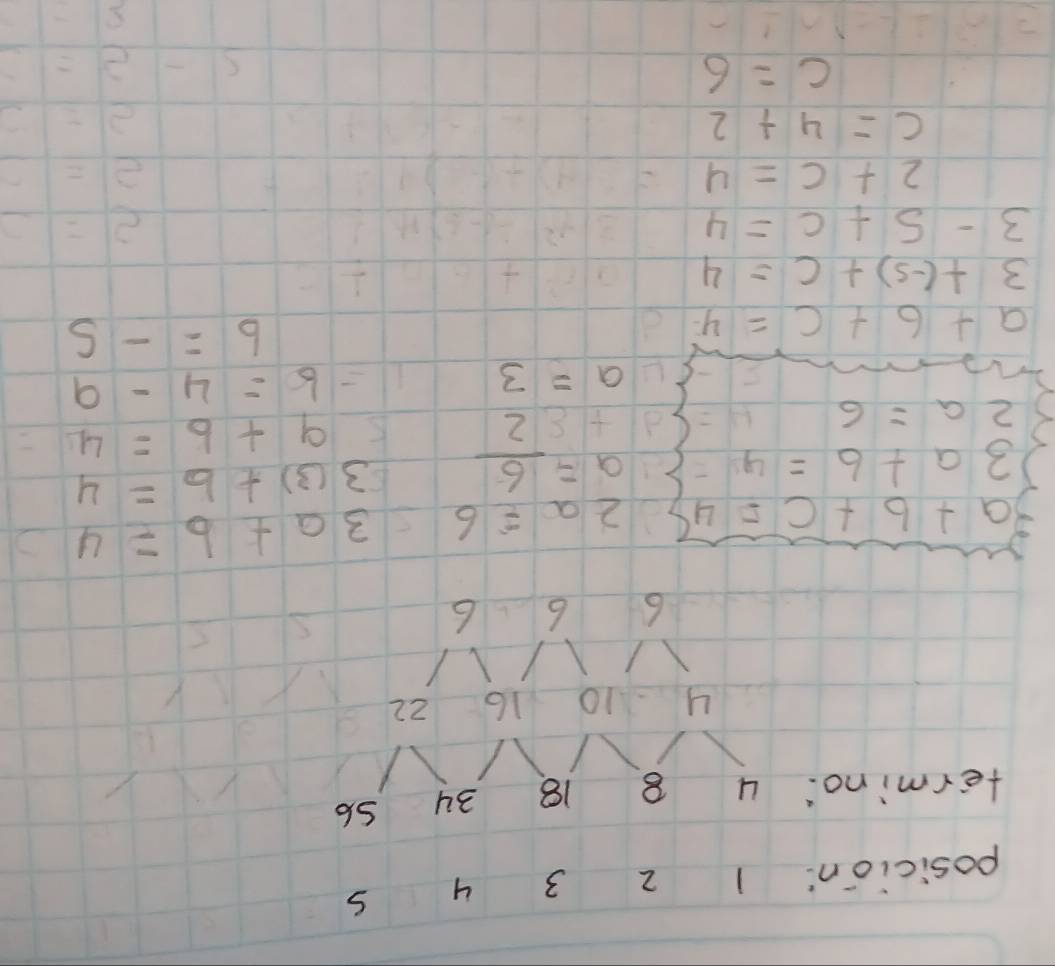 posición: 1 2 3 4 5
termino: 4 8 18 34 56
4 10 16 22
6 6 6
a + b + c = 4
3a + b = 4
2a = 6
2a = 6
a = 6/2
a = 3
3a + b = 4
3(3) + b = 4
9 + b = 4
b = 4 - 9
b = -5
a + b + c = 4
3 + (-5) + c = 4
3 - 5 + c = 4
2 + c = 4
c = 4 + 2
c = 6